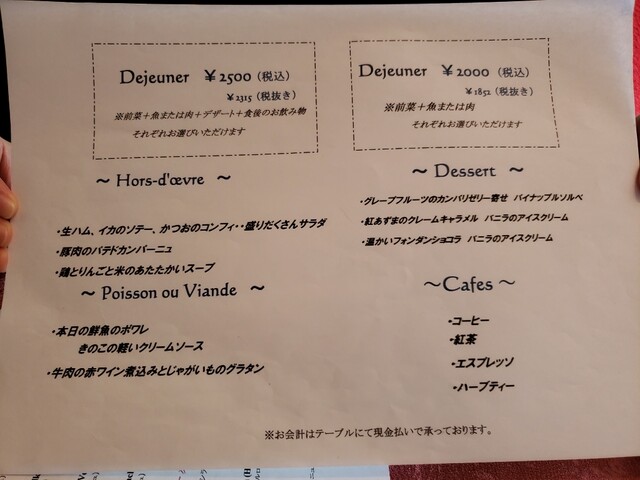 Dejeuner ￥2500（税込）
￥2315（税抜き）
※前菜＋魚または肉＋デザート＋食後のお飲み物
それぞれお選びいただけます
Dejeuner ￥2000（税込）
￥1852（税抜き）
※前菜＋魚または肉
それぞれお選びいただけます
～ Hors-d'œvre ～
・生ハム、イカのソテー、かつおのコンフィ・・盛りだくさんサラダ
・豚肉のパテドカンパーニュ
・鶏とりんごと米のあたたかいスープ
～ Poisson ou Viande ～
・本日の鮮魚のポワレ
きのこの軽いクリームソース
・牛肉の赤ワイン煮込みとじゃがいものグラタン
～ Dessert ～
・グレープフルーツのカンパリゼリー寄せ パイナップルソルベ
・紅あずまのクレームキャラメル バニラのアイスクリーム
・温かいフォンダンショコラ バニラのアイスクリーム
～Cafes ～
・コーヒー
・紅茶
・エスプレッソ
・ハーブティー
※お会計はテーブルにて現金払いで承っております。